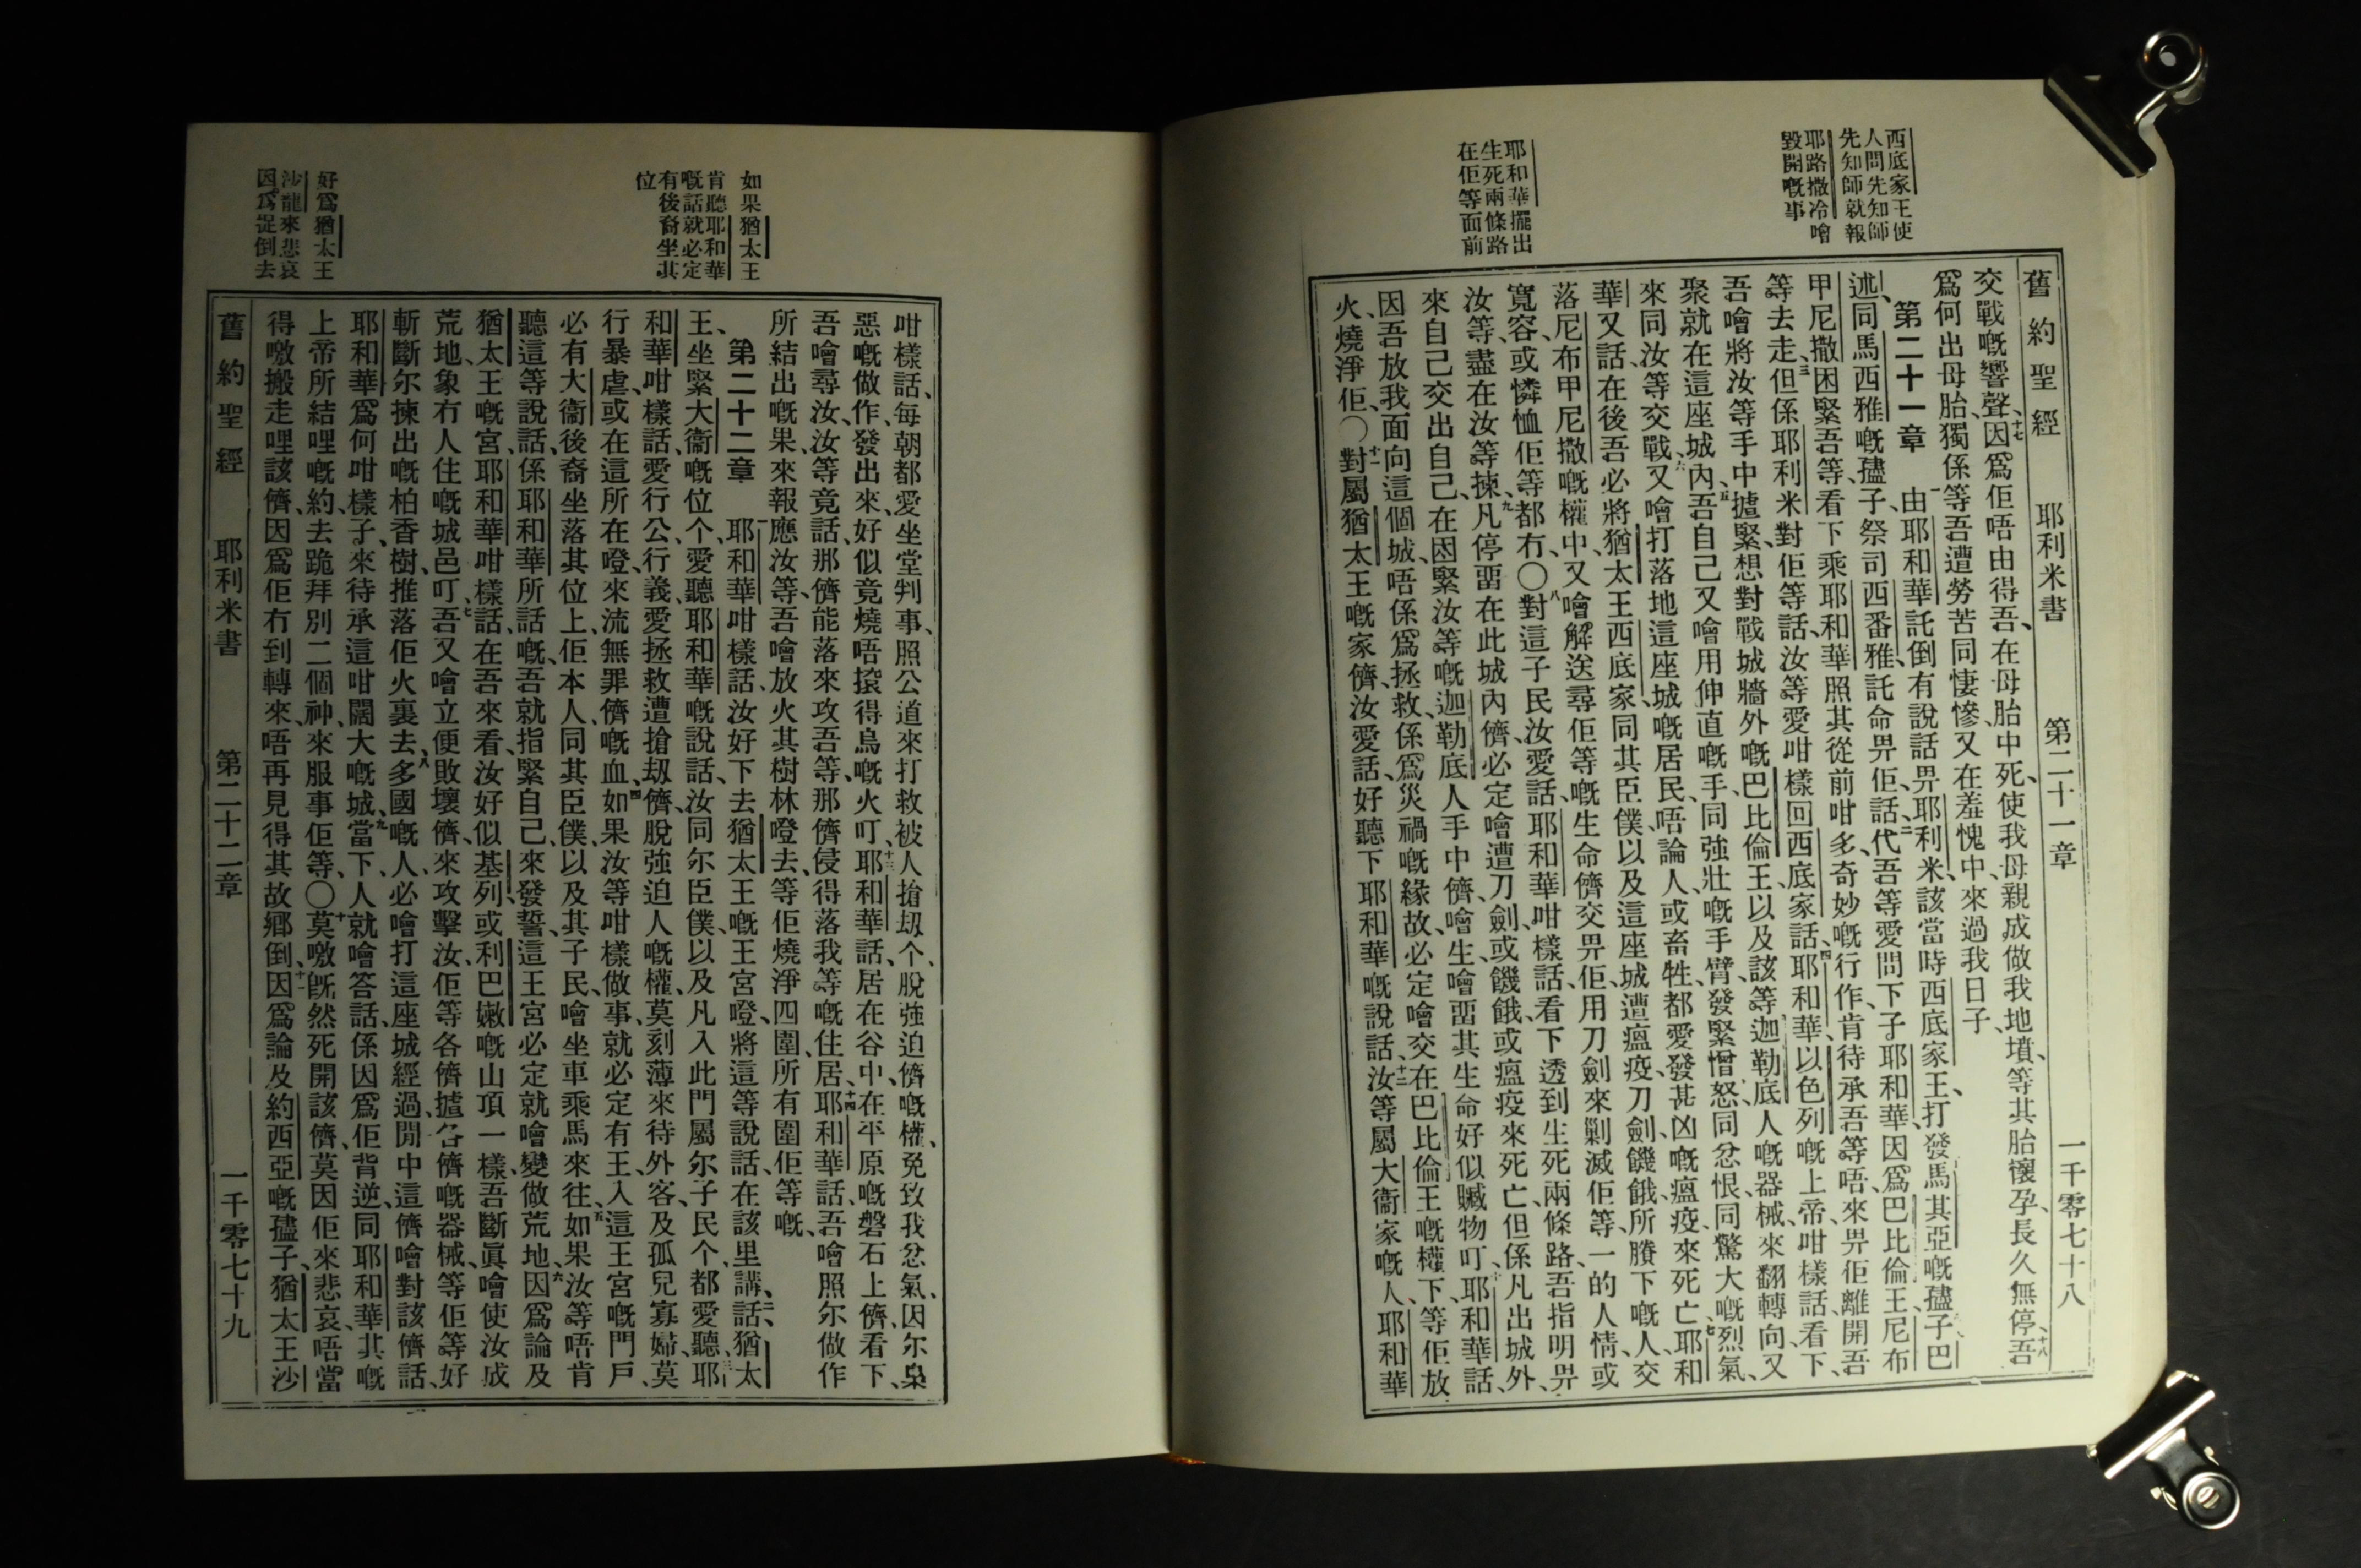 西底家王使
人問先知師
先知師就報
耶路撒冷噲
毀開嘅事
耶和華擺出
生死兩條路
在佢等面前
舊約聖經 耶利米書 第二十一章 一千零七十八
交戰嘅響聲、十七因爲佢唔由得吾、在母胎中死、使我母親成做我地墳、等其胎懷孕、長久無停、十八吾
爲何出母胎、獨係等吾遭勞苦同悽慘、又在羞愧中、來過我日子、
第二十一章 一由耶和華託倒有說話畀耶利米、該當時西底家王、打發馬其亞嘅孻子巴
述、同馬西雅嘅孻子祭司西番雅、託命畀佢、話、二代吾等愛問下子耶和華、因爲巴比倫王、尼布
甲尼撒、困緊吾等、看下乘耶和華照其從前咁多奇妙嘅行作、肯待承吾等唔、來畀佢離開吾
等去走、三但係耶利米對佢等話、汝等愛咁樣回西底家話、四耶和華、以色列嘅上帝、咁樣話、看下、
吾噲將汝等手中揸緊、想對戰城牆外嘅巴比倫王、以及該等迦勒底人嘅器械、來翻轉向、又
聚就在這座城內、五吾自己又噲用伸直嘅手、同強壯嘅手臂、發緊憎怒、同忿恨、同驚大嘅烈氣、
來同汝等交戰、六又噲打落地這座城嘅居民、唔論人、或畜牲、都愛發甚凶嘅瘟疫、來死亡、七耶和
華又話、在後吾必將猶太王西底家、同其臣僕、以及這座城遭瘟疫、刀劍、饑餓、所賸下嘅人、交
落尼布甲尼撒嘅權中、又噲解送尋佢等嘅生命儕、交畀佢、用刀劍來剿滅佢等、一的人情、或
寬容、或憐恤佢等都冇、〇八對這子民、汝愛話、耶和華咁樣話、看下、透到生死兩條路、吾指明畀
汝等、盡在汝等揀、九凡停畱在此城內儕、必定噲遭刀劍、或饑餓、或瘟疫、來死亡、但係凡出城外、
來自己交出自己、在困緊汝等嘅迦勒底人手中儕、噲生、噲畱其生命、好似贓物叮、十耶和華話、
因吾放我面向這個城、唔係爲拯救、係爲災禍嘅緣故、必定噲交在巴比倫王嘅權下、等佢放
火、燒淨佢、〇十一對屬猶太王嘅家儕、汝愛話、好聽下耶和華嘅說話、十二汝等屬大衞家嘅人、耶和華
如果猶太王
肯聽耶和華
嘅話就必定
有後裔坐其
位
好爲猶太王
沙龍來悲哀
因爲捉倒去
咁樣話、每朝都愛坐堂判事、照公道來打救被人搶刼个、脫強迫儕嘅權、免致我忿氣、因尔梟
惡嘅做作、發出來、好似竟燒唔㨘得烏嘅火叮、十三耶和華話、居在谷中、在平原嘅磐石上儕、看下、
吾噲尋汝、汝等竟話、那儕能落來攻吾等、那儕侵得落我等嘅住居、十四耶和華話、吾噲照尔做作
所結出嘅果、來報應汝等、吾噲放火其樹林嗌去、等佢燒淨四圍、所有圍佢等嘅、
第二十二章 一耶和華咁樣話、汝好下去猶太王嘅王宮嗌、將這等說話、在該里講、二話、猶太
王、坐緊大衞嘅位个、愛聽耶和華嘅說話、汝同尔臣僕、以及凡入此門屬尔子民个、都愛聽、三耶
和華咁樣話、愛行公、行義、愛拯救遭搶刼儕、脫強迫人嘅權、莫刻薄來待外客、及孤兒寡婦、莫
行暴虐、或在這所在嗌、來流無罪儕嘅血、四如果汝等咁樣做事、就必定有王、入這王宮嘅門戶、
必有大衞後裔坐落其位上、佢本人同其臣僕、以及其子民、噲坐車乘馬來往、五如果汝等唔肯
聽這等說話、係耶和華所話嘅、吾就指緊自己、來發誓、這王宮必定就噲變做荒地、六因爲論及
猶太王嘅宮、耶和華咁樣話、在吾來看、汝好似基列、或利巴嫩嘅山頂一樣、吾斷眞噲使汝成
荒地、象冇人住嘅城邑叮、七吾又噲立便敗壞儕、來攻擊汝、佢等各儕揸各儕嘅器械、等佢等好
斬斷尔揀出嘅柏香樹、推落佢火裏去、八多國嘅人、必噲打這座城經過、閒中這儕噲對該儕話、
耶和華爲何咁樣子、來待承這咁闊大嘅城、九當下、人就噲答話、係因爲佢背逆、同耶和華其嘅
上帝所結哩嘅約、去跪拜別二個神、來服事佢等、〇十莫噭旣然死開該儕、莫因佢來悲哀、唔當
得噭搬走哩該儕、因爲佢冇到轉來、唔再見得其故鄕倒、十一因爲論及約西亞嘅孻子、猶太王沙
舊約聖經 耶利米書 第二十二章 一千零七十九